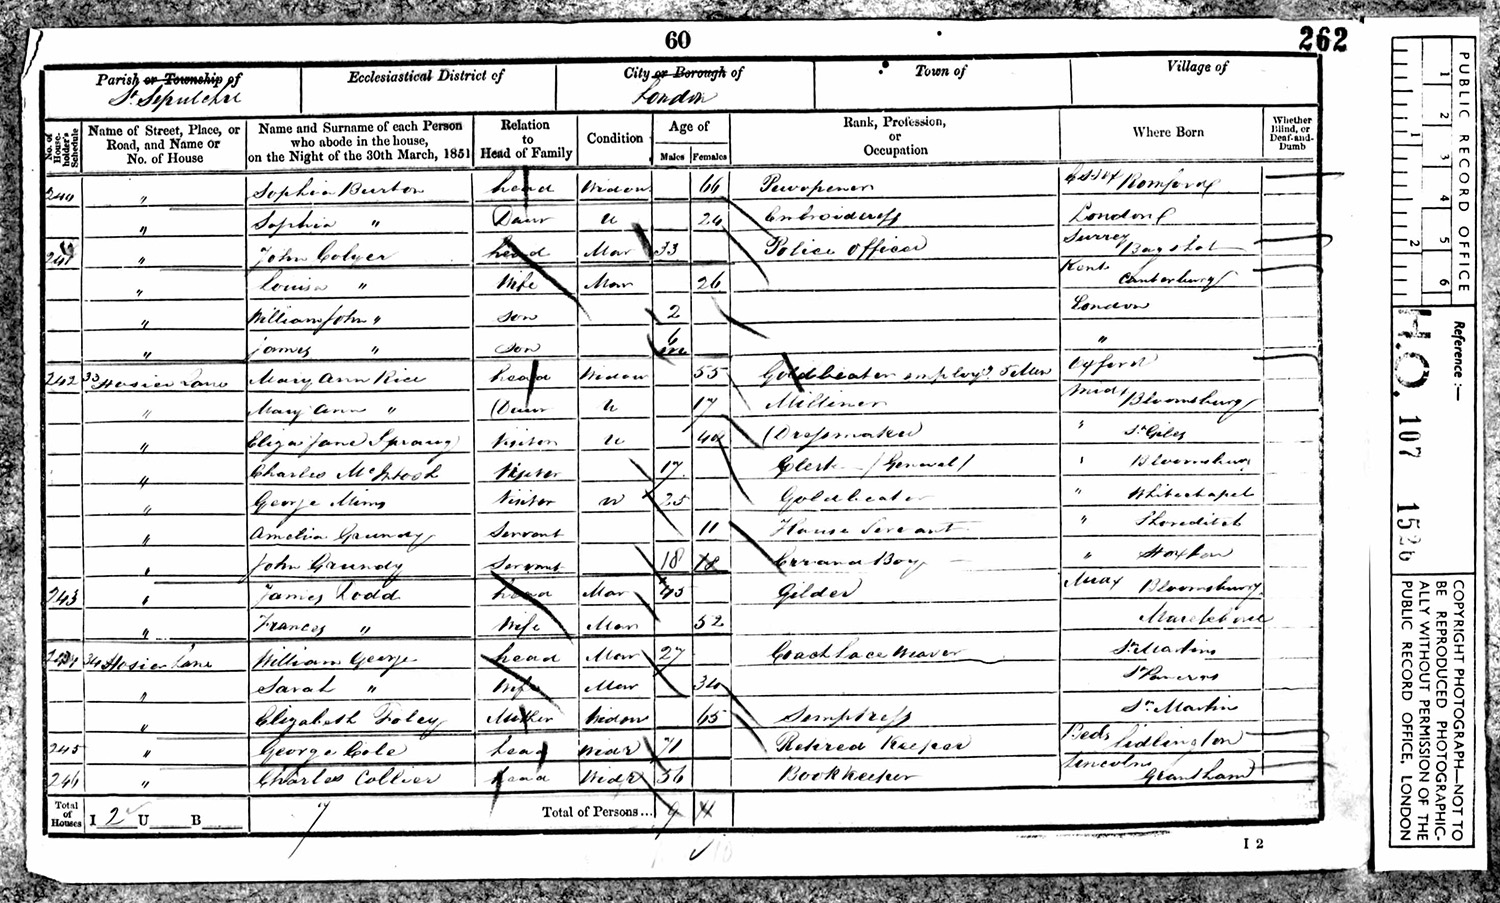 60
262
Parish or Township of
St Sepulchre
Ecclesiastical District of
City or Borough of
London
Town of
Village of
No. of House-holder's Schedule
Name of Street, Place, or Road, and Name or No. of House
Name and Surname of each Person who abode in the house, on the Night of the 30th March, 1851
Relation to Head of Family
Condition
Age of
Males Females
Rank, Profession, or Occupation
Where Born
Whether Blind, or Deaf-and-Dumb
240 " Sophia Burton head Widow 66 Pewopener Essex Romford
" Sophia " Daur U 24 Embroideress London
241 " John Colyer head Mar 33 Police Officer Surrey Bagshot
" Louisa " Wife Mar 26 Kent Canterbury
" William John " Son 2 London
" James " Son 6 "
242 33 Hosier Lane Mary Ann Rice head Widow 55 Goldbeater employg 5 Men Oxford
" Mary Ann " Daur U 17 Milliner Midx Bloomsbury
" Eliza Jane Visitor U 40 Dressmaker " St Giles
" Charles McIntosh Visitor 17 Clerk (General) " Bloomsbury
" George Mims Visitor U 25 Goldbeater " Whitechapel
" Amelia Grundy Servant 11 House Servant " Shoreditch
" John Grundy Servant 18 18 Errand Boy " Hoxton
243 " James Todd head Mar 45 Gilder Midx Bloomsbury
" Frances " Wife Mar 52 Marylebone
244 34 Hosier Lane William George head Mar 27 Coach Lace Weaver St Martins
" Sarah " Wife Mar 34 St Pancras
" Elizabeth Foley Mother Widow 65 Semptress St Martin
245 " George Cole head Widr 71 Retired Keeper Beds Lidlington
246 " Charles Collier head Widr 56 Bookkeeper Lincolns Grantham
Total of Houses I 2 U B 7 Total of Persons... 9 11
I 2
PUBLIC RECORD OFFICE
1 2 3 4 5 6
1 2
Reference :—
H.O. 107 1526
COPYRIGHT PHOTOGRAPH—NOT TO BE REPRODUCED PHOTOGRAPHIC-ALLY WITHOUT PERMISSION OF THE PUBLIC RECORD OFFICE, LONDON